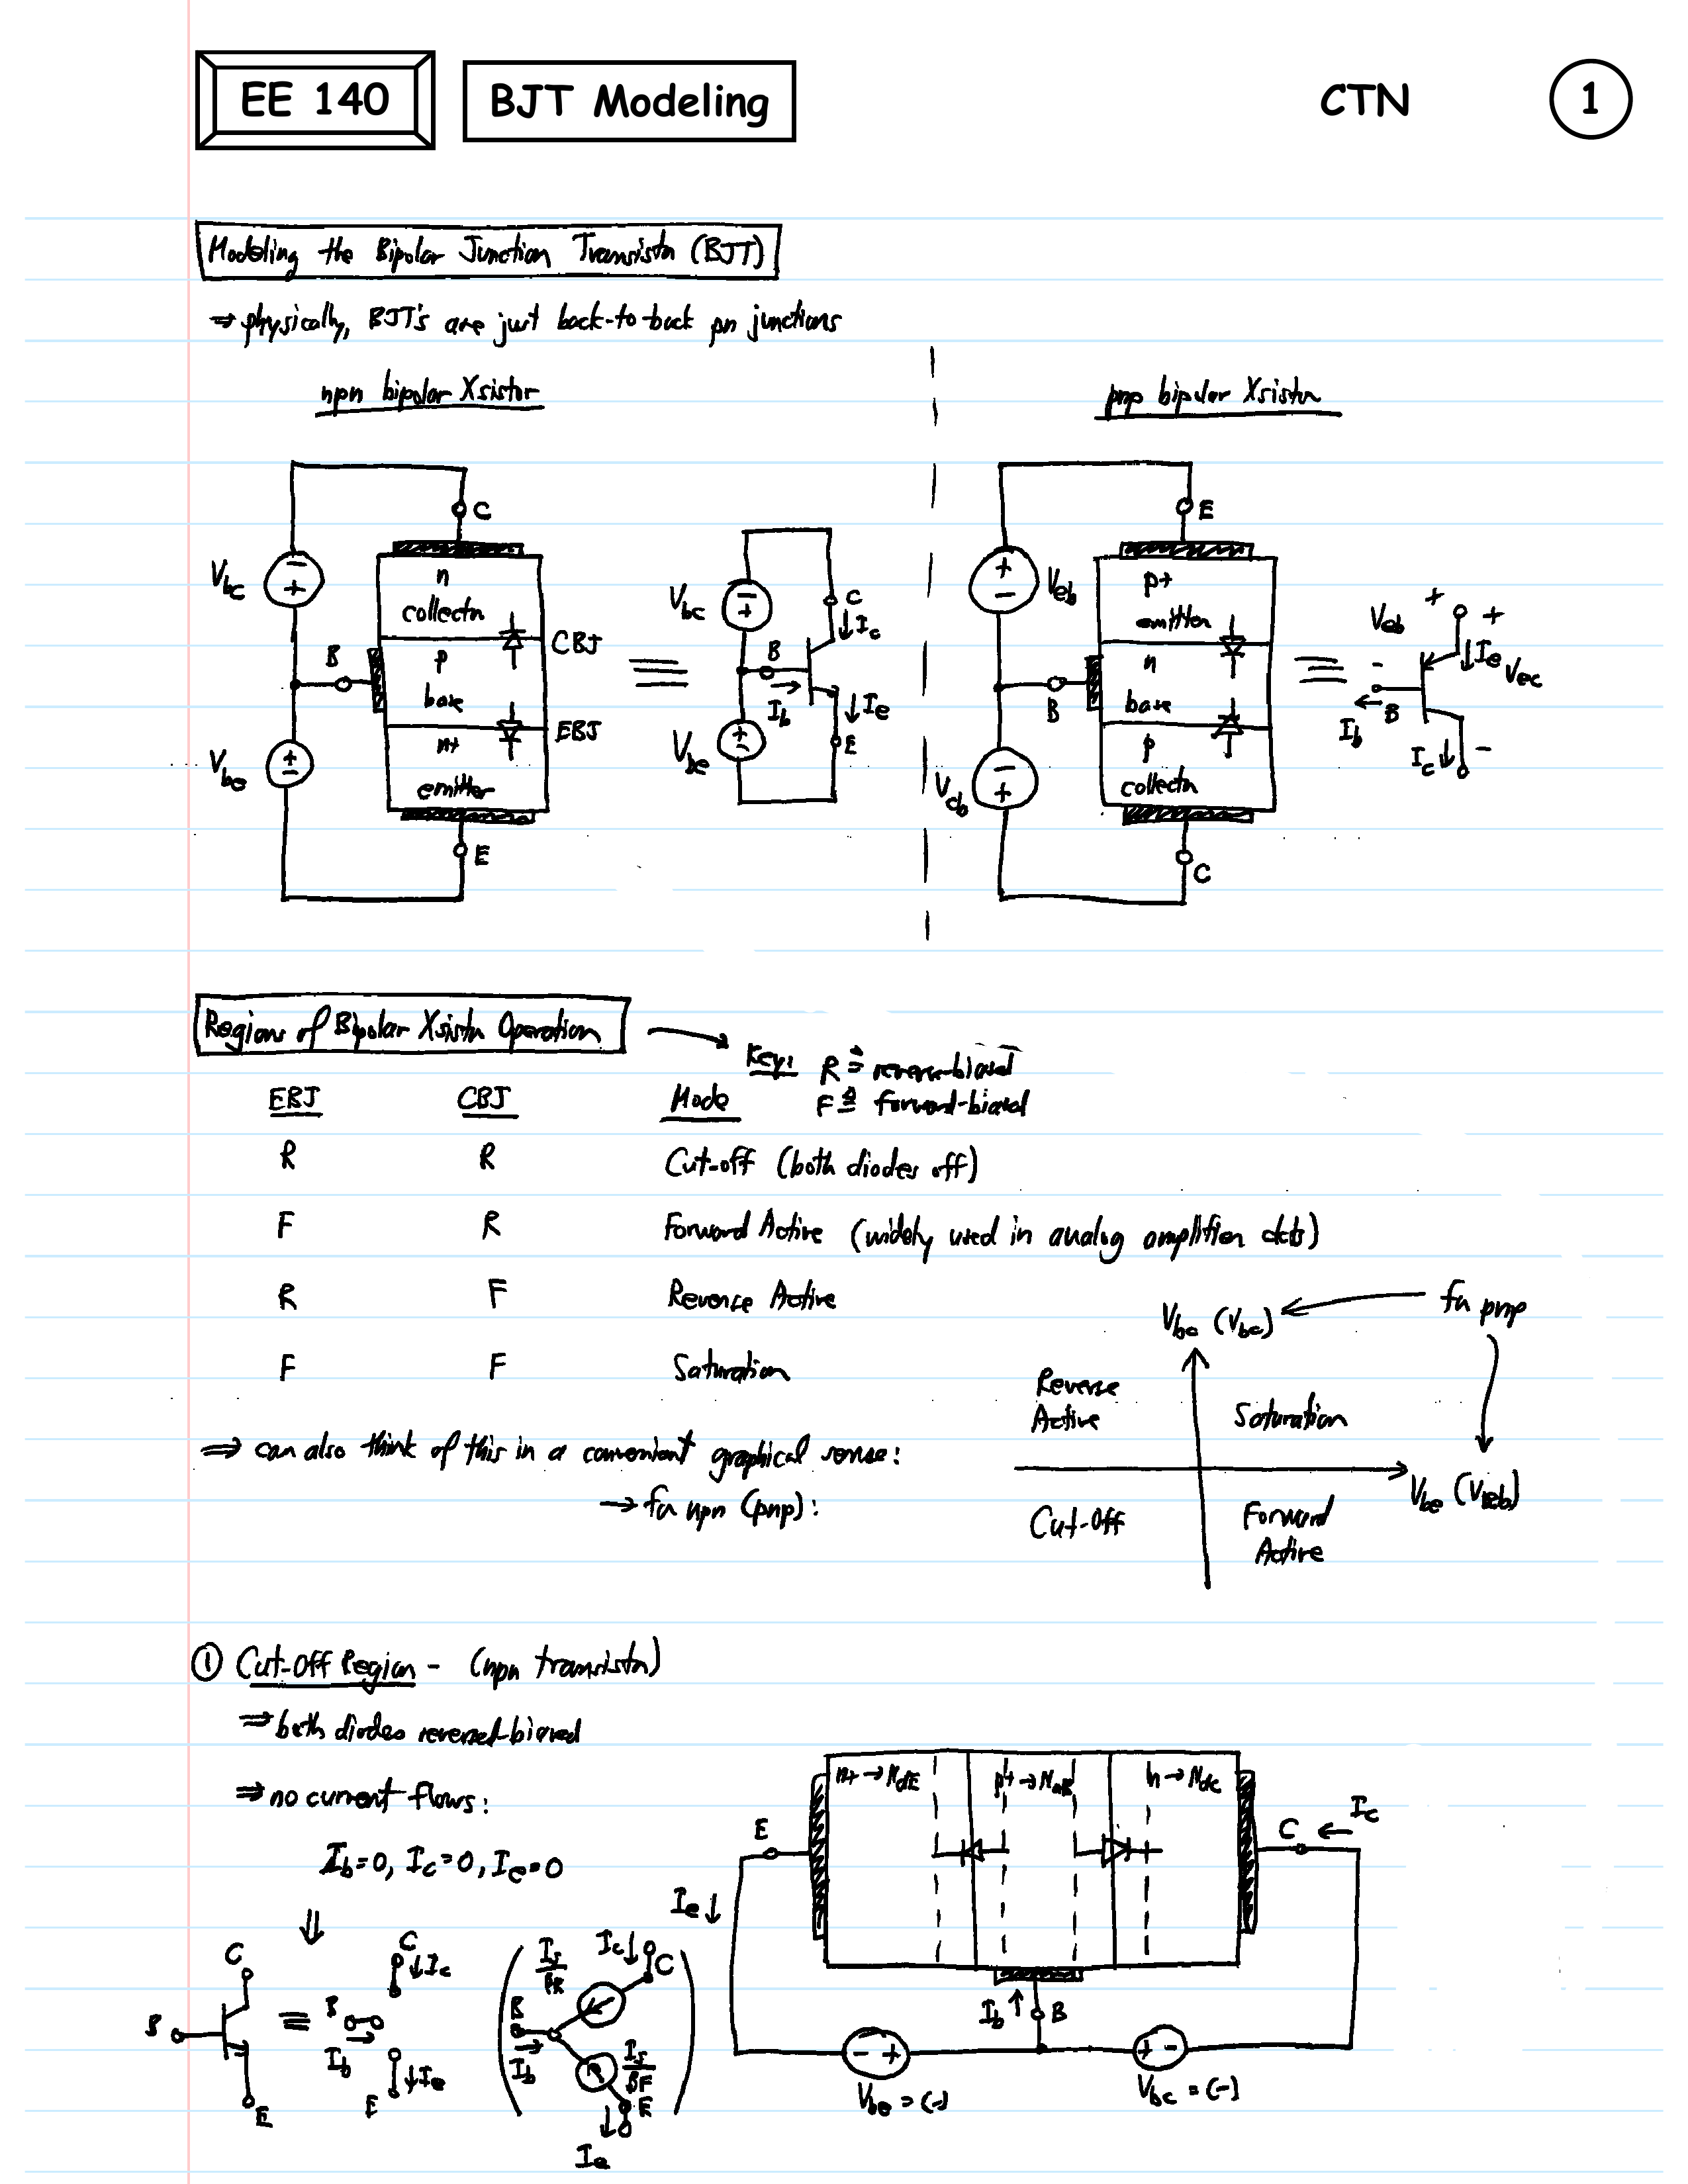 EE 140 BJT Modeling CTN 1
Modeling the Bipolar Junction Transistor (BJT)
⇒ physically, BJT's are just back-to-back pn junctions
npn bipolar Xsistor
pnp bipolar Xsistor
C
Vbc
- +
n
collector
CBJ
B
p
base
EBJ
Vbe
+ -
n+
emitter
E
≡
Vbc
- +
C
↓Ic
B
→
Ib
↓Ie
Vbe
+ -
E
E
Veb
+ -
p+
emitter
n
base
B
Vcb
- +
p
collector
C
≡
Veb + +
↓Ie
Vec
-
← B
Ib
Ic↓ -
Regions of Bipolar Xsistor Operation
Key: R ≜ reverse-biased
F ≜ forward-biased
EBJ CBJ Mode
R R Cut-off (both diodes off)
F R Forward Active (widely used in analog amplifier ckts)
R F Reverse Active
F F Saturation
⇒ can also think of this in a convenient graphical sense:
→ for npn (pnp):
for pnp
Reverse
Active
Saturation
Vbe (Veb)
Cut-Off
Forward
Active
① Cut-Off Region - (npn transistor)
⇒ both diodes reversed-biased
⇒ no current flows:
Ib=0, Ic=0, Ie=0
⇓
C
B
E
≡
C
↓Ic
B
→
Ib
↓Ie
E
Is/βR
Ic↓
C
B
→
Ib
Is/βF
E
↓
Ie
n+ → NdE
p+ → NaB
n → NdC
E
Ie↓
C ← Ic
Ib↑ B
- +
+ -
Vbe = (-)
Vbc = (-)